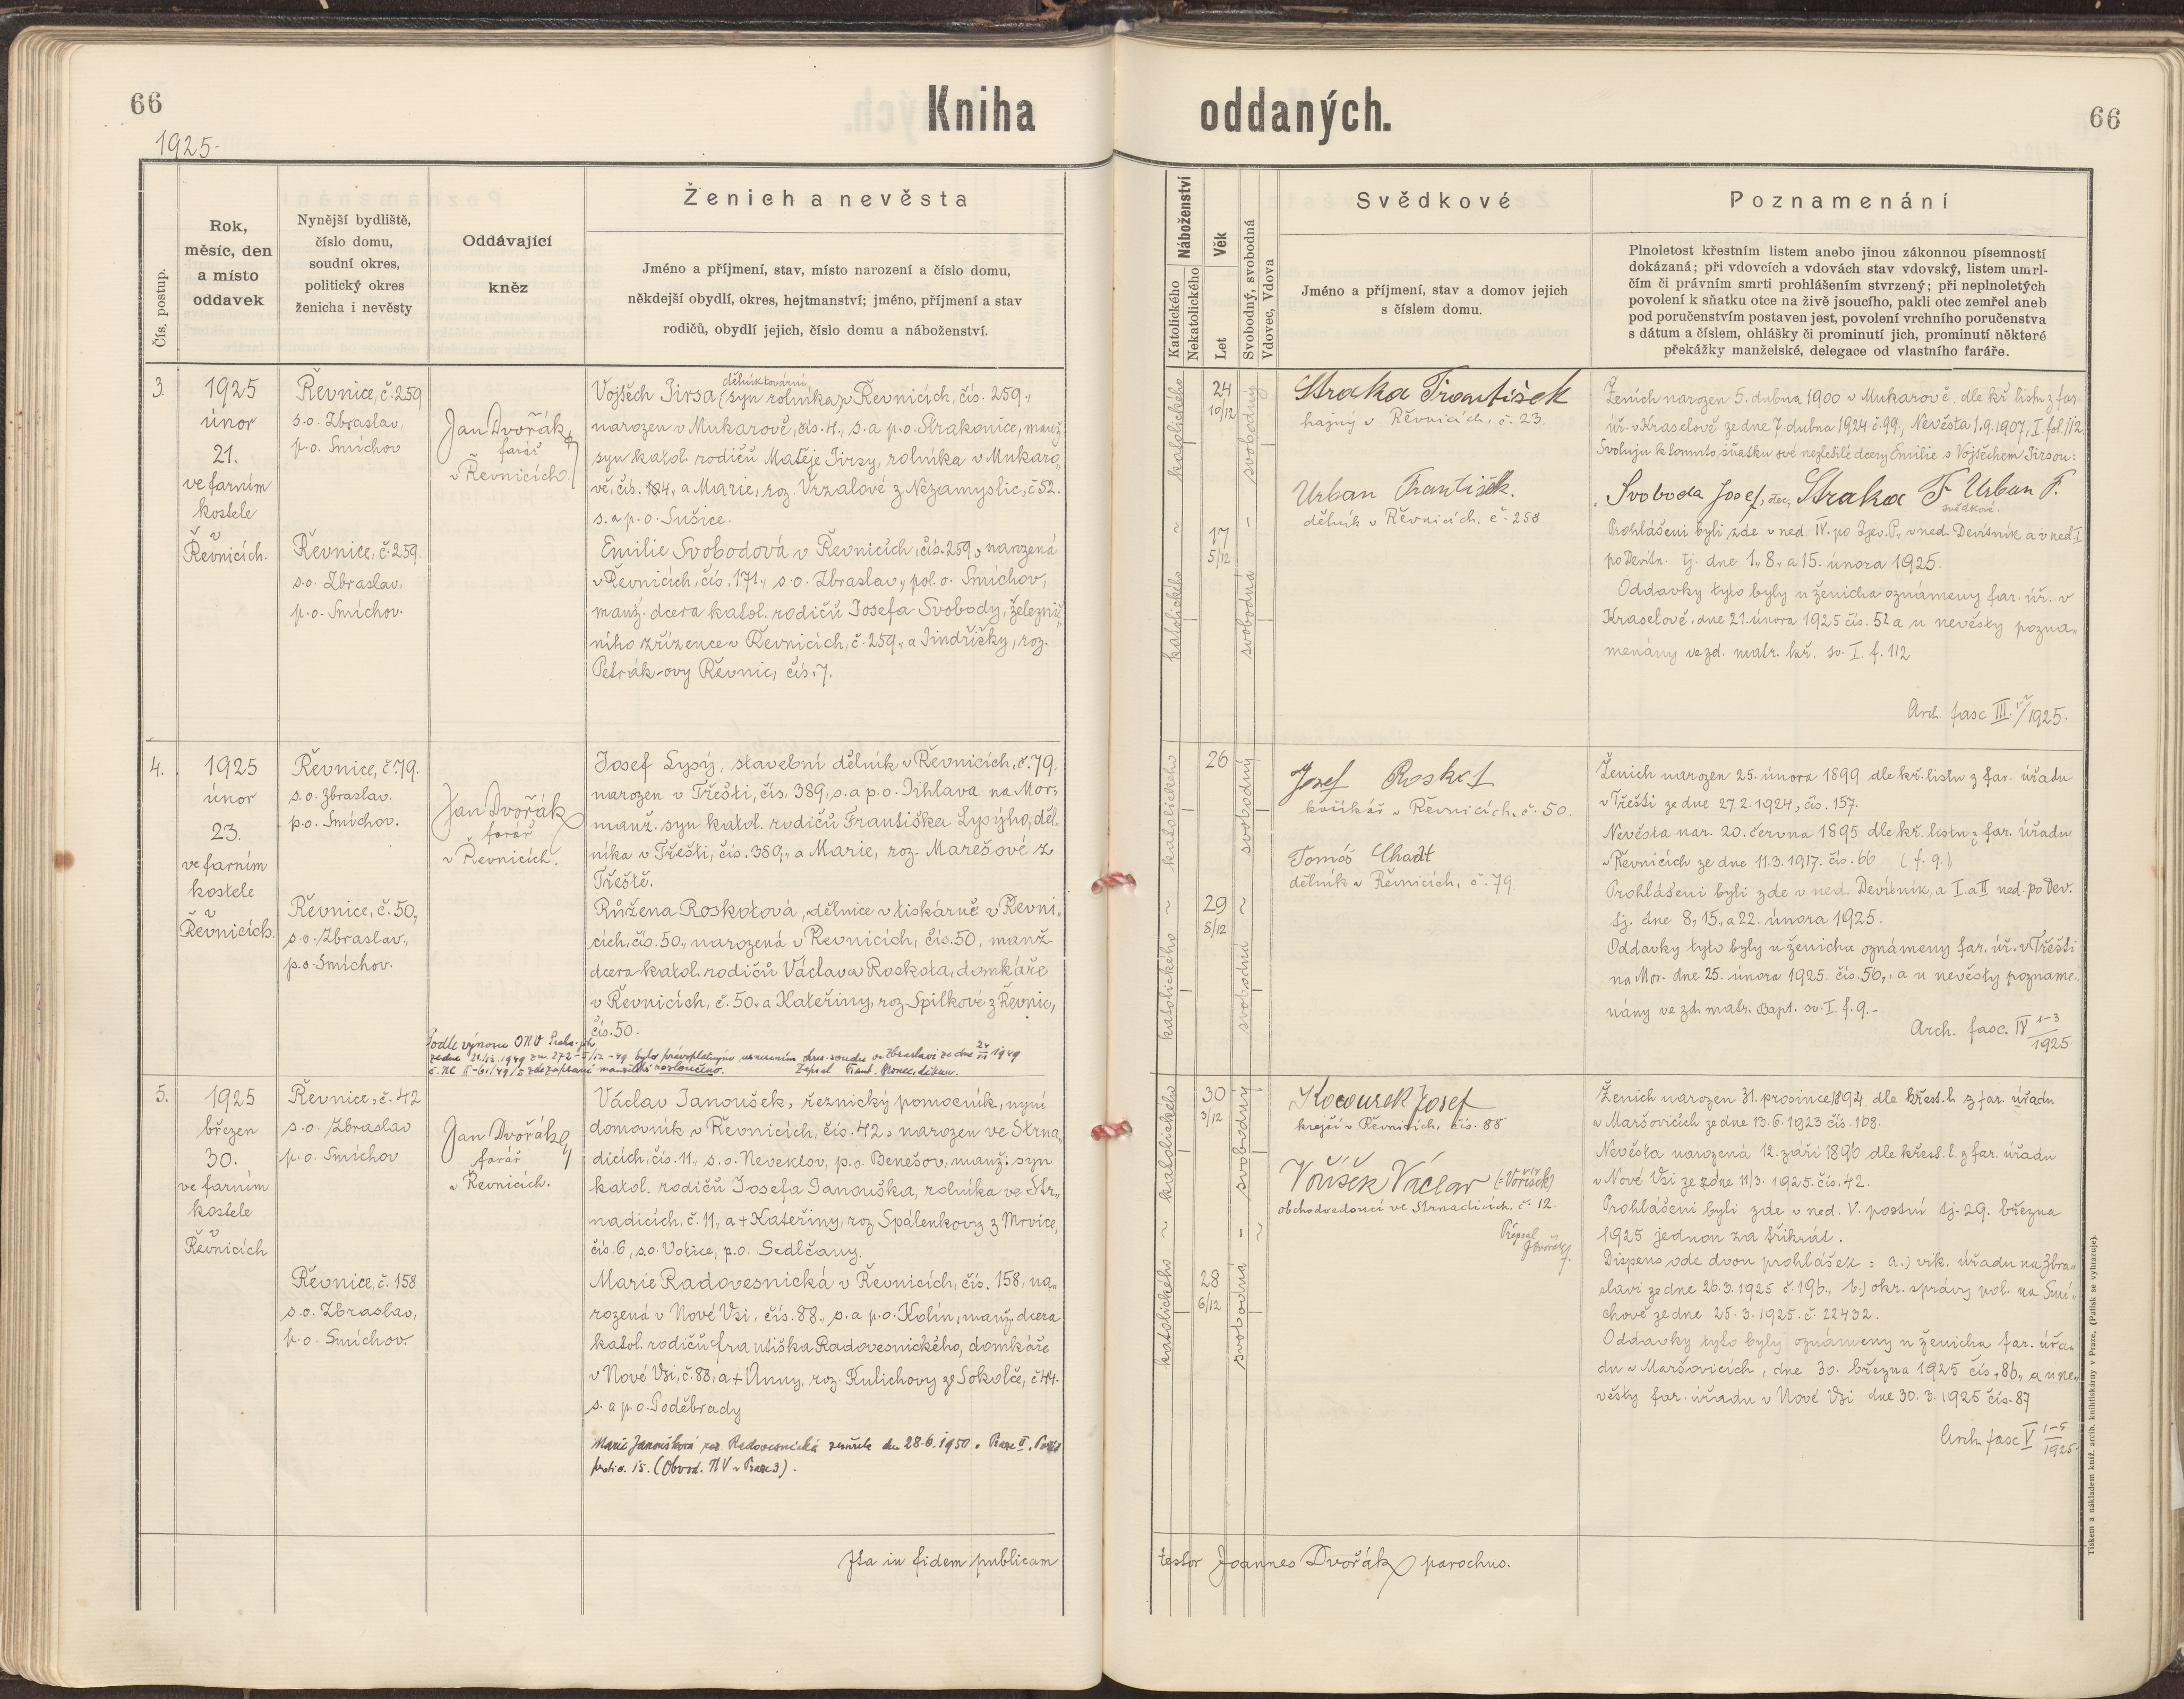 66
Kniha
oddaných.
66
1925.
Čís. postup.
Rok,
měsíc, den
a místo
oddavek
Nynější bydliště,
číslo domu,
soudní okres,
politický okres
ženicha i nevěsty
Oddávající
kněz
Ženich a nevěsta
Jméno a příjmení, stav, místo narození a číslo domu,
někdejší obydlí, okres, hejtmanství; jméno, příjmení a stav
rodičů, obydlí jejich, číslo domu a náboženství.
Náboženství
Katolického
Nekatolického
Věk
Let
Svobodný, svobodná
Vdovec, Vdova
Svědkové
Jméno a příjmení, stav a domov jejich
s číslem domu.
Poznamenání
Plnoletost křestním listem anebo jinou zákonnou písemností
dokázaná; při vdovcích a vdovách stav vdovský, listem umrl-
čím či právním smrti prohlášením stvrzený; při neplnoletých
povolení k sňatku otce na živě jsoucího, pakli otec zemřel aneb
pod poručenstvím postaven jest, povolení vrchního poručenstva
s dátum a číslem, ohlášky či prominutí jich, prominutí některé
překážky manželské, delegace od vlastního faráře.
3.
1925
únor
21.
ve farním
kostele
v
Řevnicích.
Řevnice, č. 259
s.o. Zbraslav,
p.o. Smíchov
Řevnice, č. 259
s.o. Zbraslav,
p.o. Smíchov.
Jan Dvořák
farář
v Řevnicích.
dělník tovární
Vojtěch Jirsa (syn rolníka) v Řevnicích, čís. 259.,
narozen v Mukarově, čís. 4., s. a p.o. Strakonice, manž.
syn katol. rodičů Matěje Jirsy, rolníka v Mukaro„
vě, čís. 4„ a Marie, roz. Vrzalové z Nezamyslic, č 52.
s. a p.o. Sušice.
Emilie Svobodová v Řevnicích, čís. 259, narozená
v Řevnicích, čís. 171., s.o. Zbraslav„ pol. o. Smíchov,
manž. dcera katol. rodičů Josefa Svobody, železnič„
ního zřízence v Řevnicích, č. 259„ a Jindřišky, roz.
Petrák-ovy Řevnic, čís. 7.
katolického ~ katolického
24
10/12
17
5/12
svobodný - svobodná
Straka František
hajný v Řevnicích, č. 23.
Urban František.
dělník v Řevnicích. č. 258
Ženich narozen 5. dubna 1900 v Mukarově dle kř. listu z far.
úř. v Kraselově ze dne 7. dubna 1924 č. 99., Nevěsta 1.9.1907, I. fol. 112.
Svoluji k tomuto sňatku své nezletilé dcery Emilie s Vojtěchem Jirsou:
Svoboda Josef, otec, Straka F Urban F.
svědkové.
Prohlášeni byli zde v ned. IV. po Zjev. P., v ned. Devítník a v ned. I
po Devítn. tj. dne 1., 8., a 15. února 1925.
Oddavky tyto byly u ženicha oznámeny far. úř. v
Kraselově, dne 21. února 1925 čís. 52 a u nevěsty pozna„
menány ve zd. matr. kř. sv. I. f. 112
Arch. fasc III. 1925.
4.
1925
únor
23.
ve farním
kostele
v
Řevnicích.
Řevnice, č. 79.
s.o. Zbraslav.
p.o. Smíchov.
Řevnice, č. 50,
s.o. Zbraslav„
p.o. Smíchov.
Jan Dvořák
farář
v Řevnicích.
Josef Lysý, stavební dělník v Řevnicích, č. 79.
narozen v Třešti, čís. 389, s. a p.o. Jihlava na Mor.,
manž. syn katol. rodičů Františka Lysýho, děl„
níka v Třešti, čís. 389„ a Marie, roz. Marešové z
Třeště.
Růžena Roskotová, dělnice v tiskárně v Řevni„
cích, čís. 50., narozená v Řevnicích, čís. 50, manž
dcera katol. rodičů Václava Roskota, domkáře
v Řevnicích, č. 50. a Kateřiny, roz. Spilkové z Řevnic,
čís. 50.
Podle výnosu ONV Praha-jih
ze dne 21/12.1949 zn. 272-5/12-49 bylo právoplatným usnesením okres. soudu ve Zbraslavi ze dne 1949
č. Nc II-61/49/5 zde zapsané manželství rozloučeno. Zapsal Frant. děkan.
katolického ~ katolického
26
29
8/12
svobodný ~ svobodná
Josef Roskot
košíkář v Řevnicích, č. 50.
Tomáš Chadt
dělník v Řevnicích, č. 79.
Ženich narozen 25. února 1899 dle kř. listu z far. úřadu
v Třešti ze dne 27.2.1924, čís. 157.
Nevěsta nar. 20. června 1895 dle kř. listu z far. úřadu
v Řevnicích ze dne 11.3.1917. čís. 66 (f. 9.)
Prohlášeni byli zde v ned. Devítník, a I. a II ned. po Dev.
tj. dne 8., 15., a 22. února 1925.
Oddavky tyto byly u ženicha oznámeny far. úř. v Třešti
na Mor. dne 25. února 1925 čís. 50., a u nevěsty pozname„
nány ve zd. matr. Bapt. sv. I. f. 9.-
Arch. fasc. IV 1-3
1925.
5.
1925
březen
30.
ve farním
kostele
v
Řevnicích
Řevnice, č. 42
s.o. Zbraslav
p.o. Smíchov
Řevnice, č. 158
s.o. Zbraslav,
p.o. Smíchov.
Jan Dvořák
farář
v Řevnicích.
Václav Janoušek, řeznický pomocník, nyní
domovník v Řevnicích, čís. 42, narozen ve Strna„
dicích, čís. 11., s.o. Neveklov, p.o. Benešov, manž. syn
katol. rodičů Josefa Janouška, rolníka ve Str„
nadicích, č. 11., a + Kateřiny, roz. Spálenkovy z Mrvice,
čís. 6, s.o. Votice, p.o. Sedlčany.
Marie Radovesnická v Řevnicích, čís. 158, na„
rozená v Nové Vsi, čís. 88., s. a p.o. Kolín, manž. dcera
katol. rodičů Františka Radovesnického, domkáře
v Nové Vsi, č. 88, a + Anny, roz. Kulichovy ze Sokolče, č 44.
s. a p.o. Poděbrady
Marie Janoušková roz. Radovesnická zemřela dne 28.6.1950 v Praze II,
(Obvod. NV v Praze 3).
katolického ~ katolického
30
3/12
28
6/12
svobodný - svobodná
Kocourek Josef
krejčí v Řevnicích, čís. 88
Voříšek Václav (=Voříšek)
obchodvedoucí ve Strnadicích, č. 12.
Přepsal
JDvořák
Ženich narozen 31. prosince 1894 dle křest. l. z far. úřadu
v Maršovicích ze dne 13.6.1923 čís. 168.
Nevěsta narozená 12. září 1896 dle křest. l. z far. úřadu
v Nové Vsi ze dne 11/3. 1925. čís. 42.
Prohlášeni byli zde v ned. V. postní tj. 29. března
1925 jednou za třikrát.
Dispens ode dvou prohlášek: a.) vik. úřadu na Zbra„
slavi ze dne 26.3.1925 č. 196., b.) okr. správy pol. na Smí„
chově ze dne 25.3.1925. č. 22432.
Oddavky tyto byly oznámeny u ženicha far. úřa„
du v Maršovicích, dne 30. března 1925 čís. 86., a u ne„
věsty far. úřadu v Nové Vsi dne 30.3.1925 čís. 87
Arch. fasc V 1-5
1925.
Ita in fidem publicam
testor Joannes Dvořák parochus.
Tiskem a nákladem kníž. arcib. knihtiskárny v Praze. (Patisk se vyhrazuje).